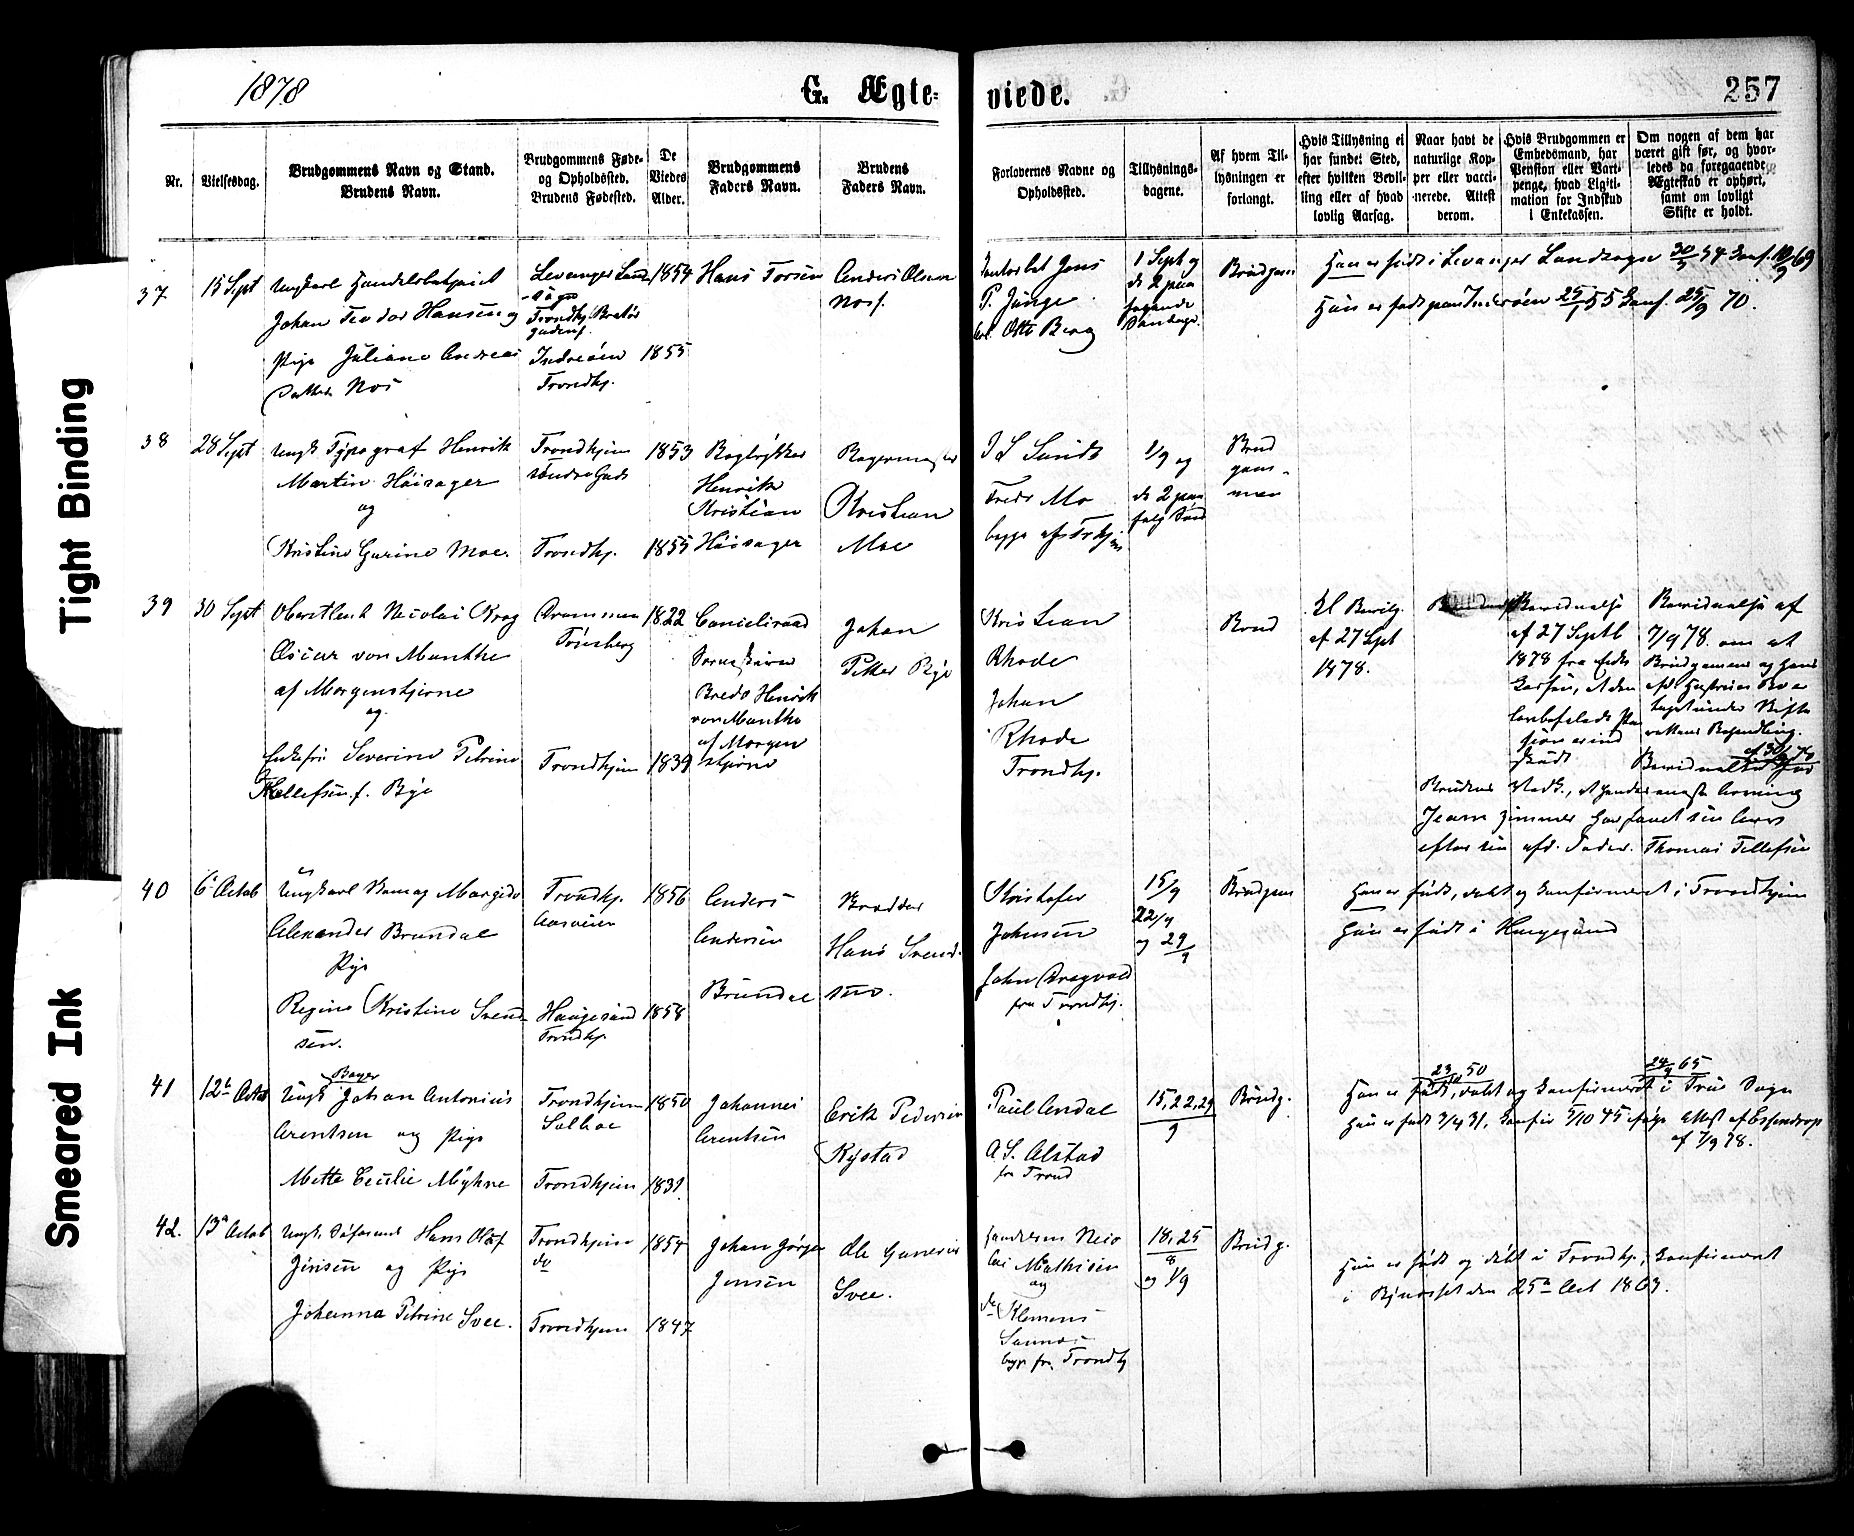 1878
G. Ægte-
viede.
257
Nr.
Vielsesdag.
Brudgommens Navn og Stand.
Brudens Navn.
Brudgommens Føde-
og Opholdssted.
Brudens Fødested.
De
Viedes
Alder.
Brudgommens
Faders Navn.
Brudens
Faders Navn.
Forlovernes Navne og
Opholdssted.
Tillysnings-
dagene.
Af hvem Til-
lysningen er
forlangt.
Hvis Tillysning ei
har fundet Sted,
efter hvilken Bevil-
ling eller af hvad
lovlig Aarsag.
Naar havt de
naturlige Kop-
per eller vacci-
nerede. Attest
derom.
Hvis Brudgommen er
Embedsmand, har
Pension eller Vart-
penge, hvad Ligiti-
mation for Indskud
i Enkekassen.
Om nogen af dem har
været gift før, og hvor-
ledes da foregaaende
Ægteskab er ophørt,
samt om lovligt
Skifte er holdt.
37
15 Sept
Ungkarl Handelsbetjent
Johan Teodor Hansen og
Pige Juliane Andrea
Nos
Levanger Land-
sogn
Trondhj.
Inderøen
Trondhj.
1854
1855
Hans Torsen
Anders Olsen
Nos
Jens
P. Junge
Otte Berg
1 Sept og
de 2 paa
følgende
Søndage.
Brudgom
Han er født i Levanger Landsogn 30/3 54 Konf. 10/9 69
Hun er født paa Inderøen 25/1 55 Konf. 25/9 70.
38
28 Sept
Ungk Typograf Henrik
Martin Høisager
og
Kristine Gurine Moe.
Trondhjem
Søndre Gade
Trondhj.
1853
1855
Bogtrykker
Henrik
Kristian
Høisager
Bagermester
Kristian
Moe
Sunde
Fredr Mo
begge af Trhjem
1/9 og
de 2 paa
følg Sønd
Brud
gom-
men
39
30 Sept
Oberstleut Nicolai Krag
Oscar von Munthe
af Morgenstjerne
og
Enkefru Severine Petrine
Tellefsen f. Bye
Drammen
Tønsberg
Trondhjem
1822
1839
Cancelliraad
Sorenskriver
Bredo Henrik
von Munthe
af Morgen
stjerne
Johan
Petter Bye
Kristian
Rhode
Johan
Rhode
Trondhj.
Brud
Kl Bevilg.
af 27 Sept
1878.
Bevidnelse
af 27 Septb
1878 fra Enke
kassen, at den
Pen
sion er ind
skudt
Bevidnelse af
7/9 78 om at
Brudgommen og hans
afd. Hustrues Bo er
taget under Skifte
rettens Behandling.
Bevidnelse
Brudens Vedk., at hendes eneste Arving
Jean Zimmer har faaet sin Arv
efter sin afd. Fader. Thomas Tellefsen
40
6 Octob
Ungkarl Margido
Alexander Brundal
Pige
Regine Kristine Svend-
sen.
Trondhj.
Aasveien
Haugesund
Trondhj.
1856
1858
Anders
Andersen
Brundal
Hans Svend-
sen.
Kristofer
Johnsen
John Dragvold
fra Trondhj.
15/9
22/9
og 29/9
Brudgom
Han er født, døbt og konfirmeret i Trondhjem
Hun er født i Haugesund
41
12te Octob
Bager
Ungk Johan Antonius
Arentsen og Pige
Mette Cecilie Myhre
Trondhjem
Trondhjem
1850
1831
Johannes
Arentsen
Erik Pedersen
Rystad
Paul Andal
A. S. Alstad
fra Trond
15, 22, 29
9
Brudg.
23 50
24/9 65
Han er født, døbt og konfirmeret i Frue Sogn
Hun er født 3/4 31, konfir 5/10 45 ifølge Attest af Essendrop
af 7/9 78.
42.
13de Octob
Ungk. Søfarend Hans Olaf
Jensen og Pige
Johanna Petrine Svee.
Trondhjem
do
Trondhjem
1854
1847
Johan Jørgen
Jensen
Ole Gunerius
Svee.
Nico
lai Mathisen
og
Klemens
begge fra Trondhj
18, 25
8
og 1/9
Brudg.
Hun er født og døbt i Trondhj., konfirmeret
i Bynesset den 25de Oct 1863.
Tight Binding
Smeared Ink